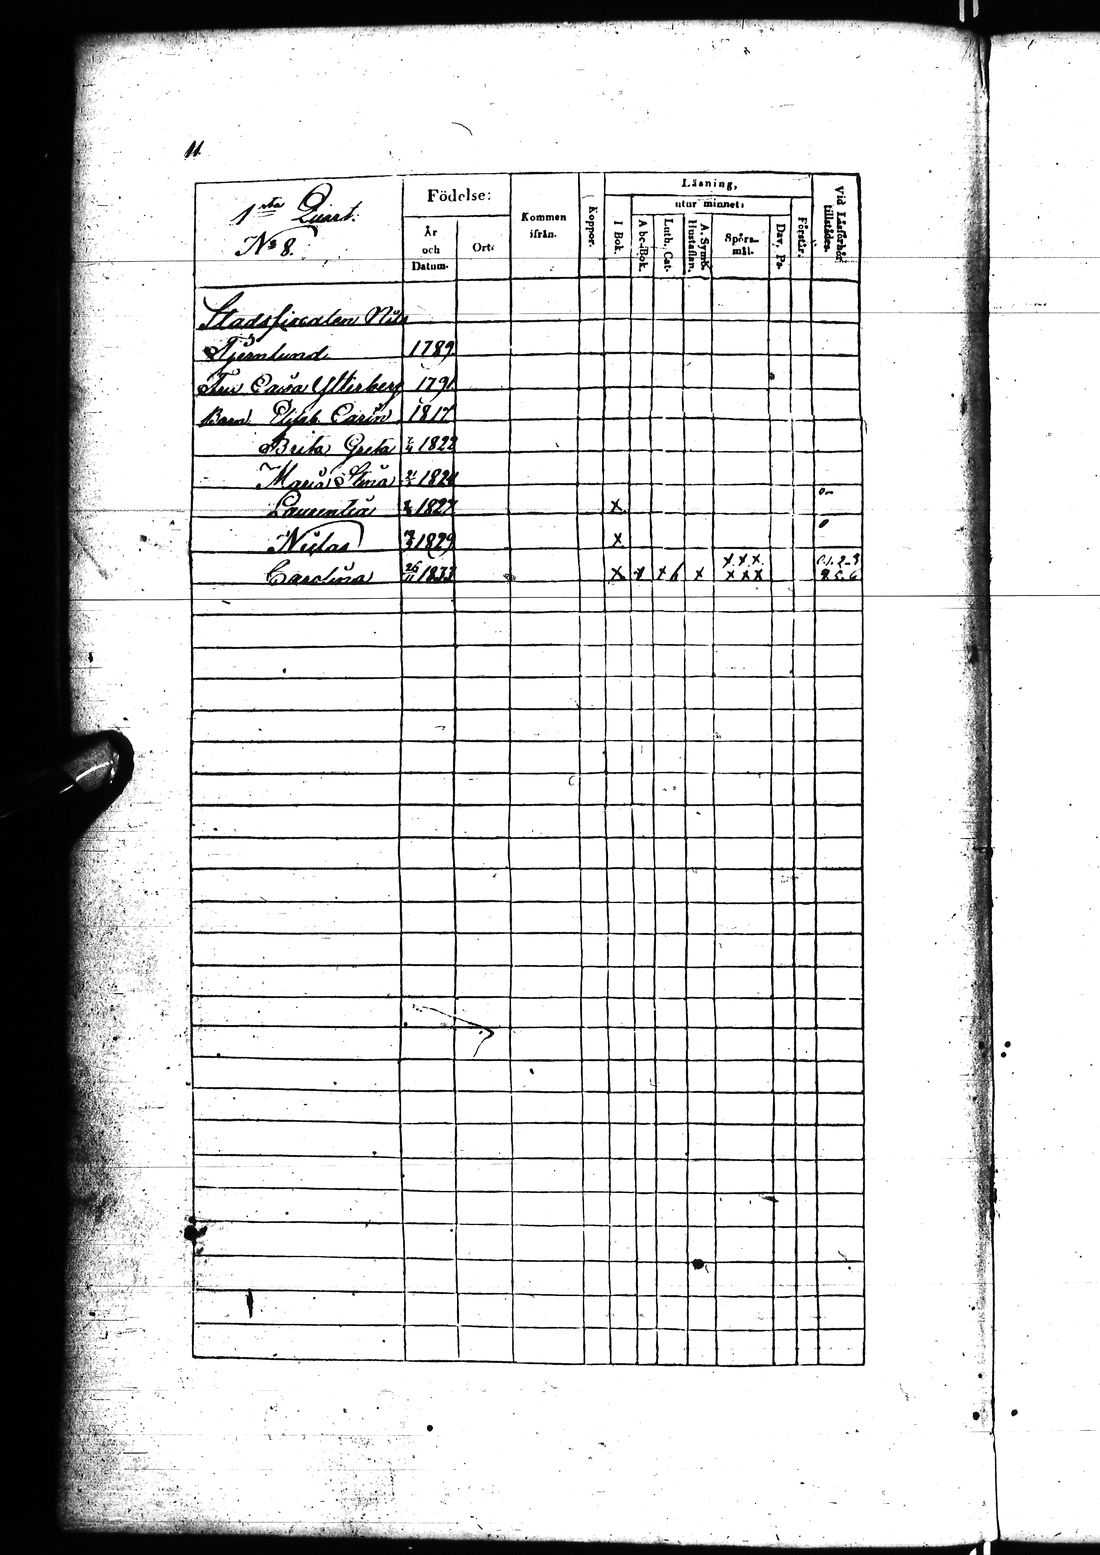 11.
1sta Quart.
No 8.
Födelse:
År
och
Datum.
Ort:
Kommen
ifrån.
Koppor.
Läsning,
utur minnet:
I Bok.
Abc-Bok.
Luth. Cat.
A. Symb.
Hustaflan.
Spörs-
mål.
Dav. Ps.
Förstår.
Vid Läsförhör
tillstädes.
Stadsfiscalen Nils
Stjernlund 1789
Caisa Ytterberg 1791
Barn Elisab. Carin 1817
Brita Greta 1822
Maria Stina 1824
Laurentia 1827 x
Niclas 1829 x
x x x
Carolina 26/11 1833 x x x b x x x x